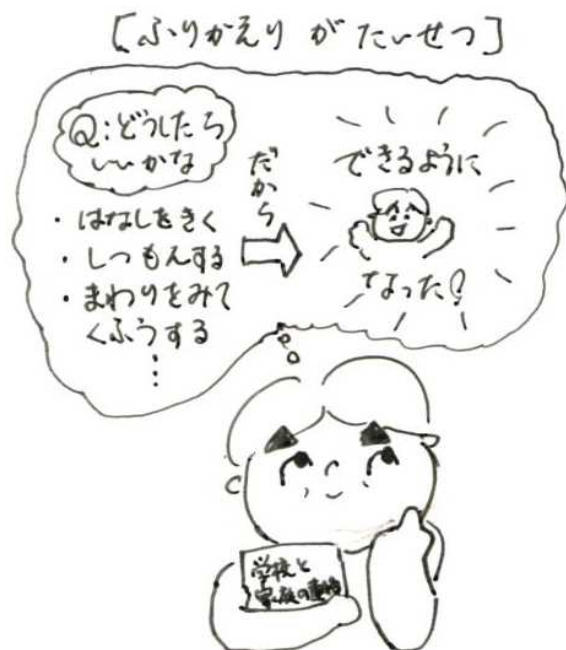 [ふりかえり が たいせつ]
Q:どうしたら
いいかな
・はなしをきく
・しつもんする
・まわりをみて
くふうする
⋮
だから
できるように
なった!
学校と
家族の